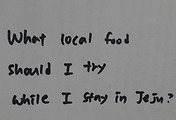 What local food
should I try
while I stay in Jeju?